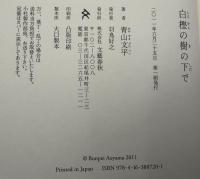 白樫の樹の下で
二〇一一年六月二十五日 第一刷発行
著者 青山文平
発行者
発行所 株式会社 文藝春秋
〒一〇二-八〇〇八
東京都千代田区紀尾井町三-二三
印刷所 凸版印刷
製本所 大口製本
万一、落丁・乱丁の場合は
送料当方負担でお取替えいたします。
小社製作部宛、お送り下さい。
定価はカバーに表示してあります。
© Bunpei Aoyama 2011
Printed in Japan
ISBN 978-4-16-380720-1